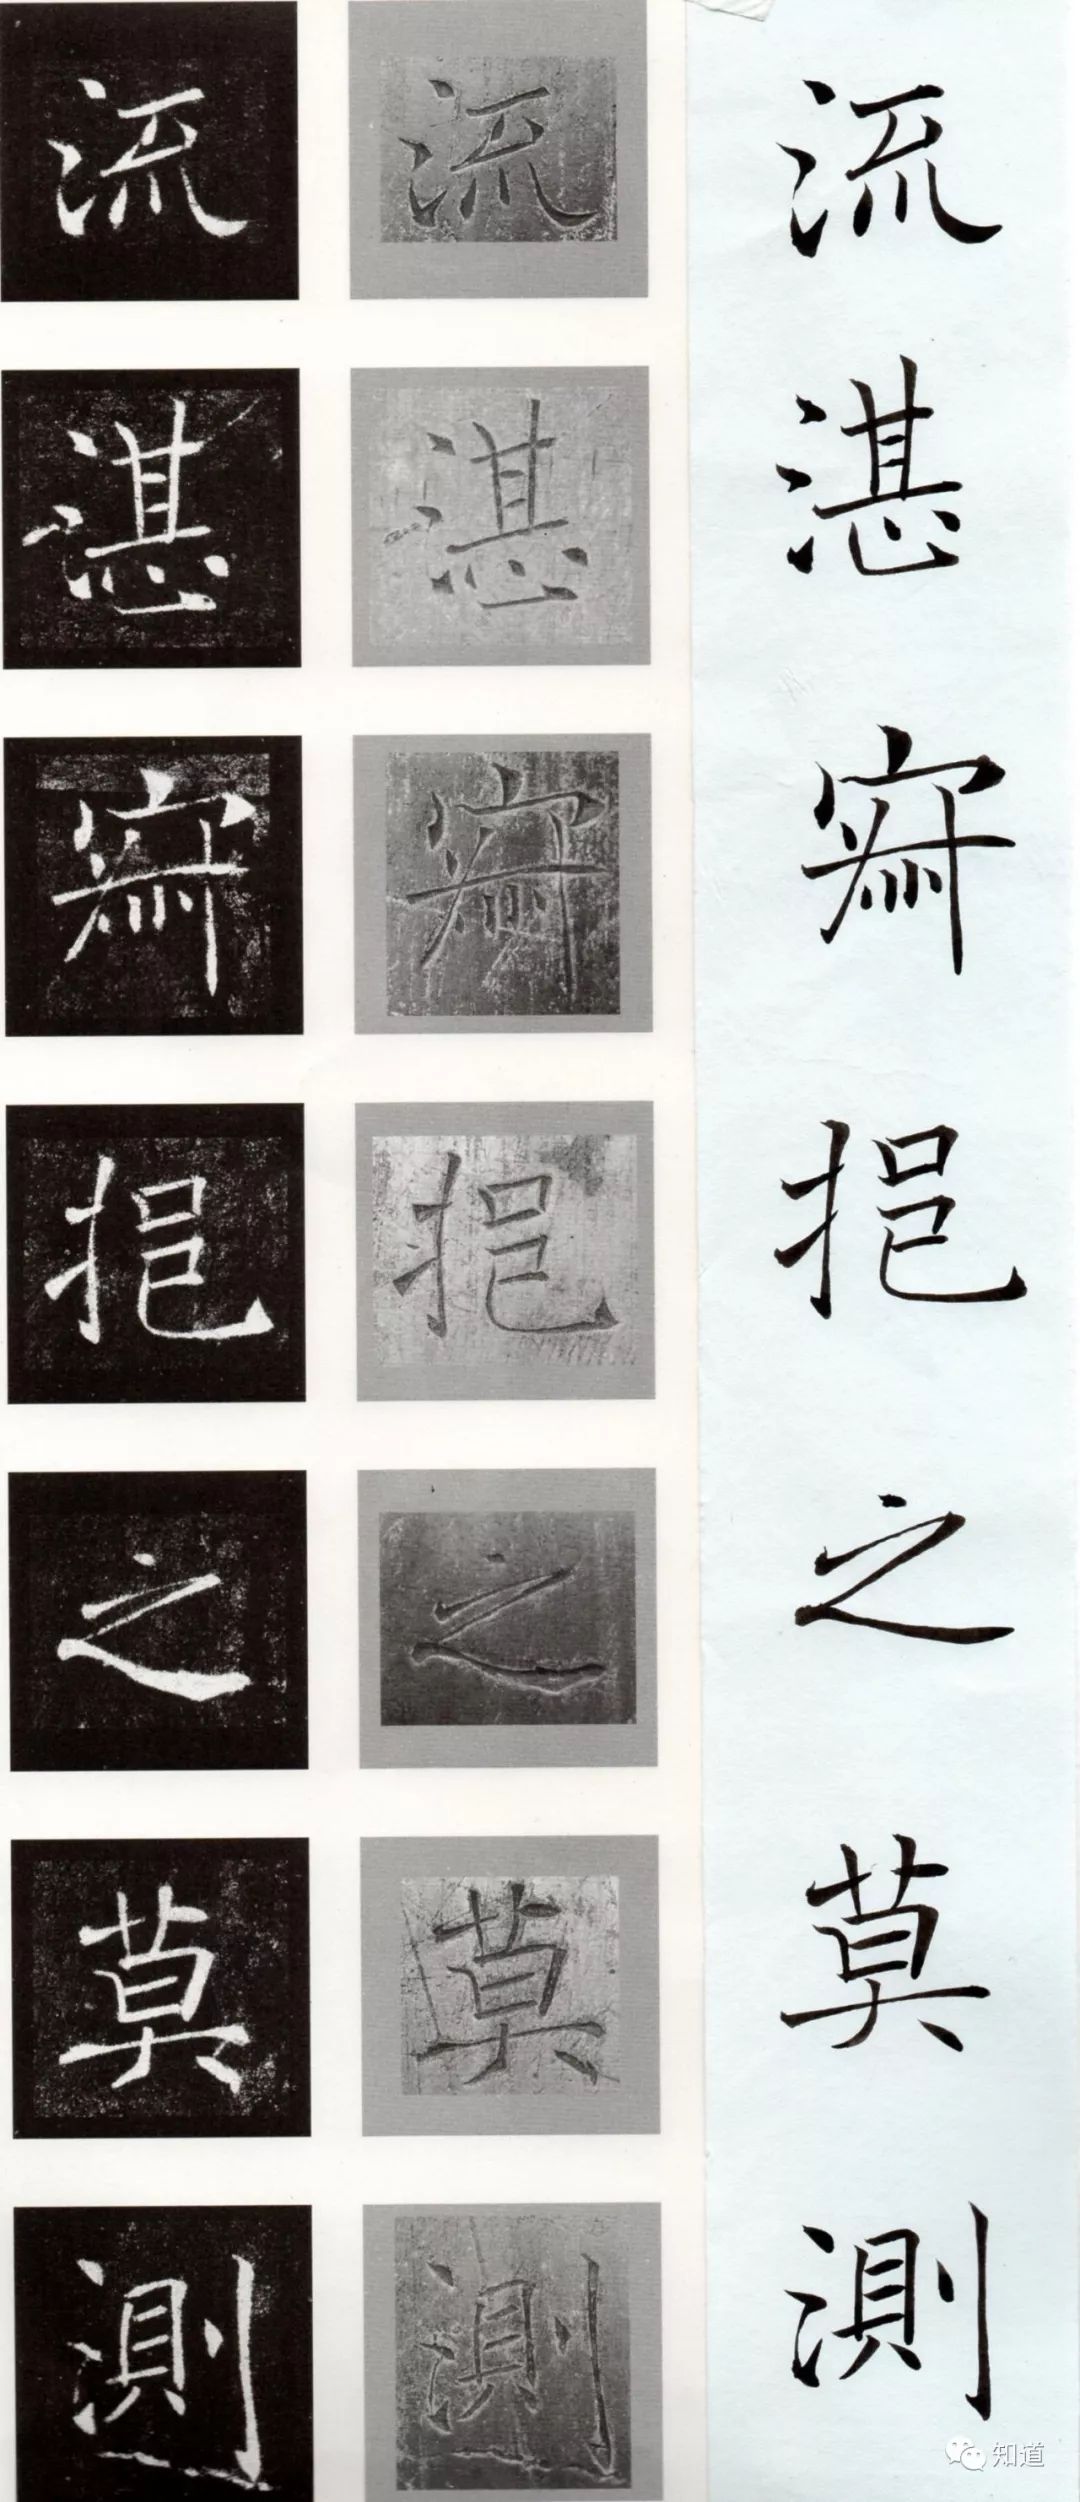 流湛寂挹之莫測
流湛寂挹之莫測
流湛寂挹之莫測
知道